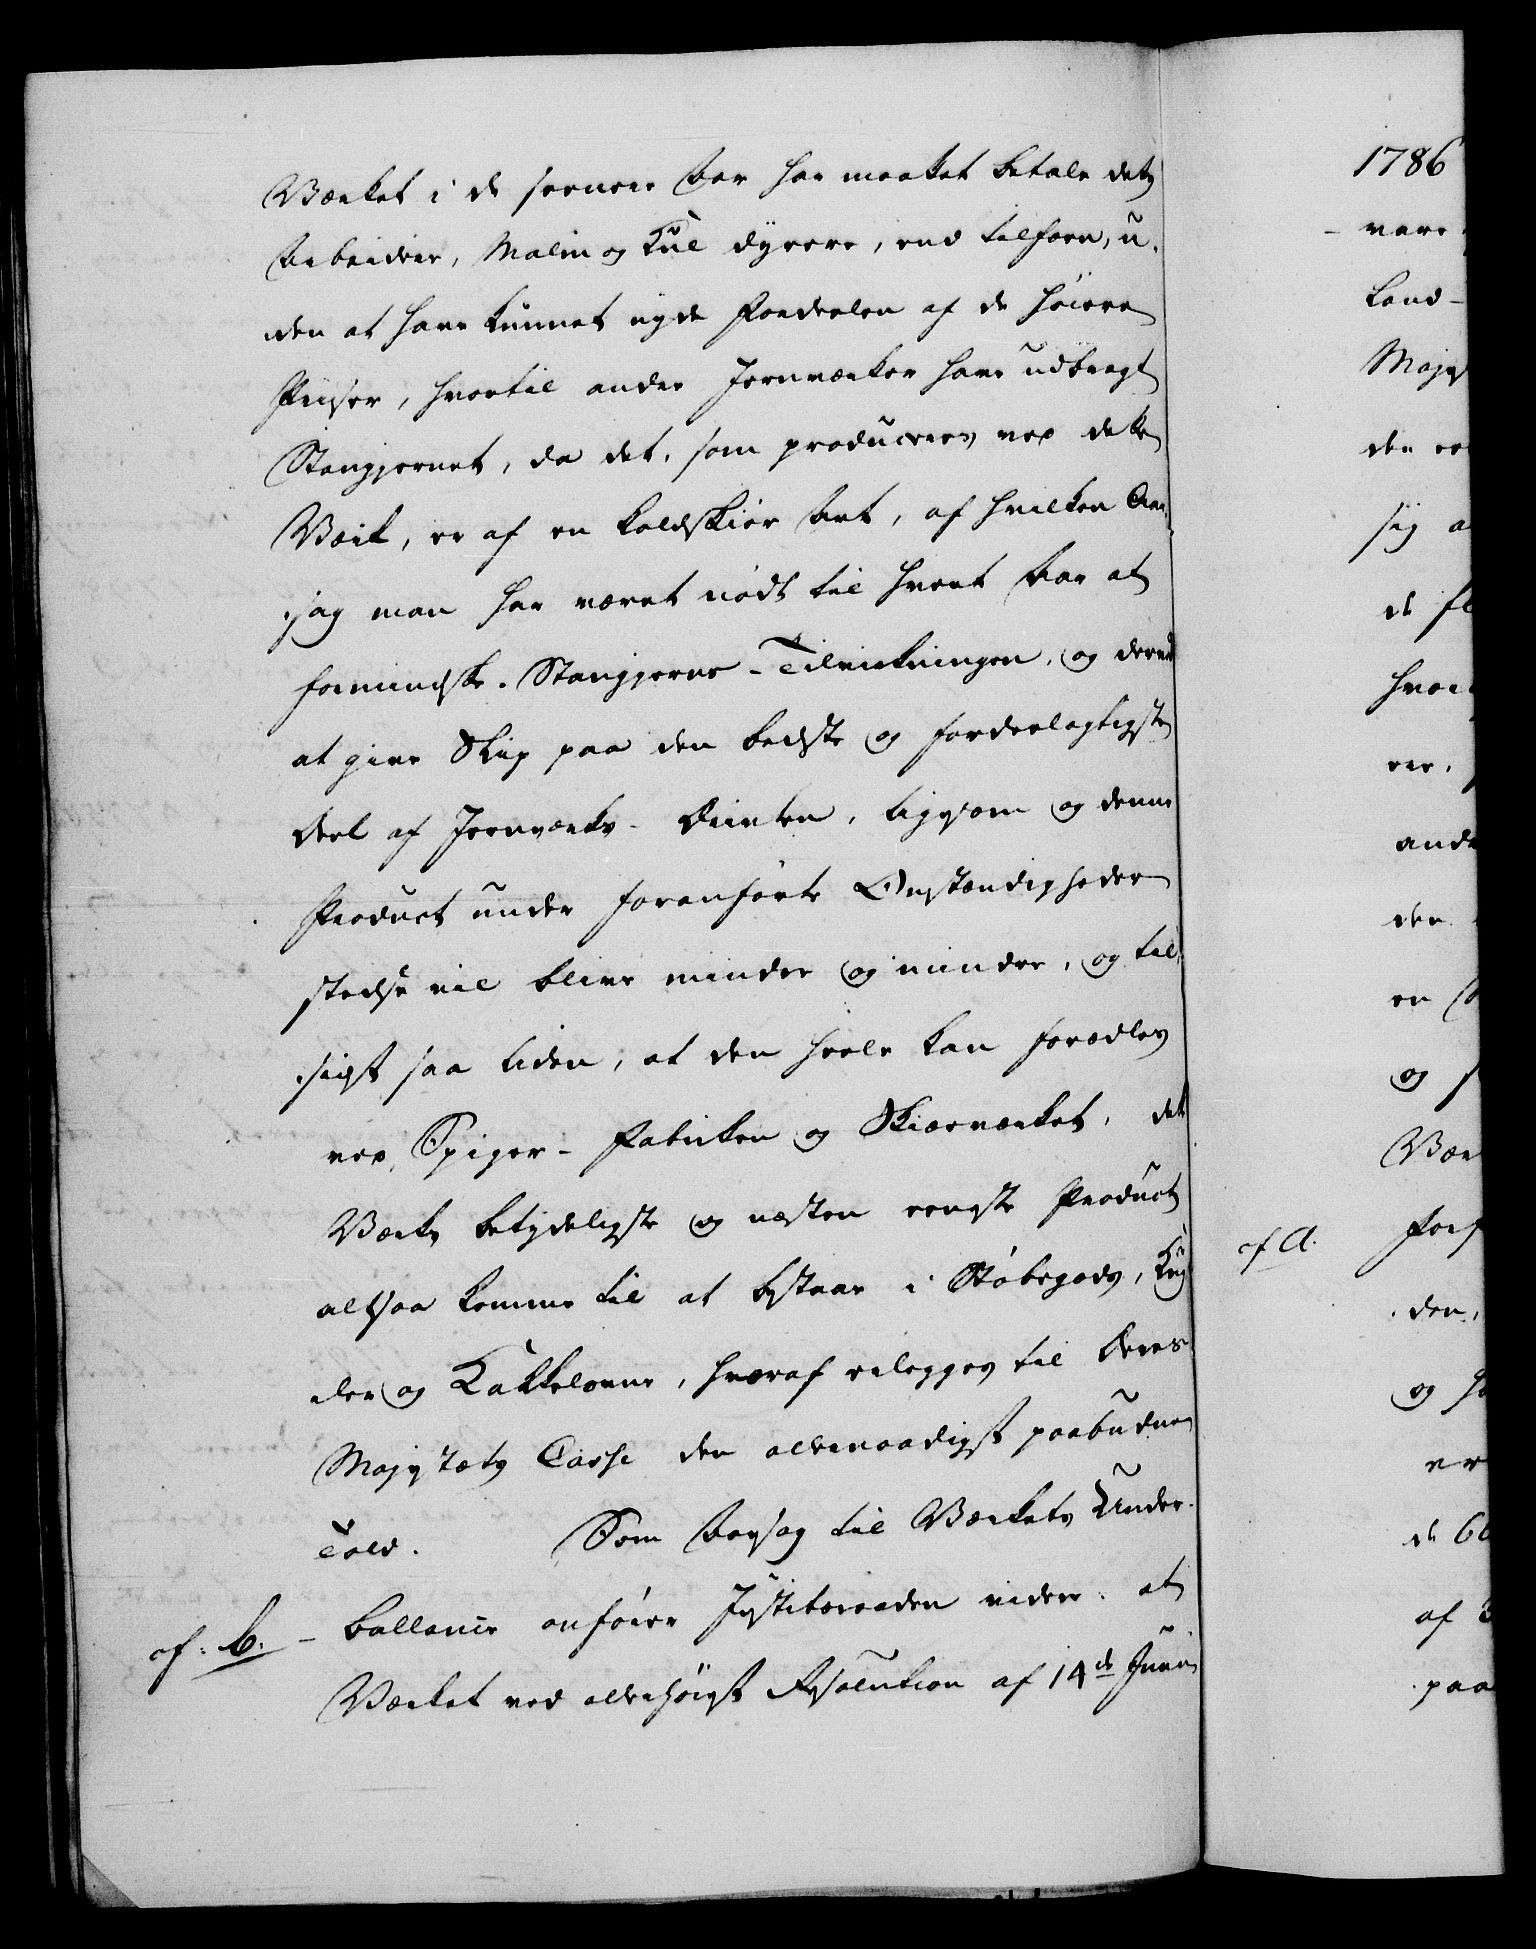 Værket i de seenere Aar har maattet betale dets
Arbeidere, Malm og Kul dyrere, end tilforn, u-
den at have kunnet nyde Fordeelen af de høiere
Priser, hvortil andre Jernværker have udbragt
Stangjernet, da det, som produceres ved dette
Værk, er af en koldskiør Art, af hvilken Aar-
sag man har været nødt til hvert Aar at
formindske Stangjerns-Tilvirkningen, og derved
at give Slip paa den bedste og fordeelagtigste
Deel af Jernværks-Driften, ligesom og denne
Product under foranførte Omstændigheder
stedse vil blive mindre og mindre, og til-
sidst saa liden, at den heele kan forædles
ved Spiger-Fabriken og Skiærværket, dette
Værks betydeligste og næsten eeneste Product
altsaa komme til at bestaae i Støbegods, Kug-
ler og Kakkelovne, hvoraf erlægges til Deres
Majestæts Casse den allernaadigst paabudne
Told. Som Aarsag til Værkets Under-
cf: b. - ballance anfører Justitsraaden videre: at
Værket ved allerhøiest Resolution af 14de Junii
1786
- være
Land-
Majes
den
sig
de
hvor
der
en
og
Vær
cf a.
den,
og
er
de
af
paa